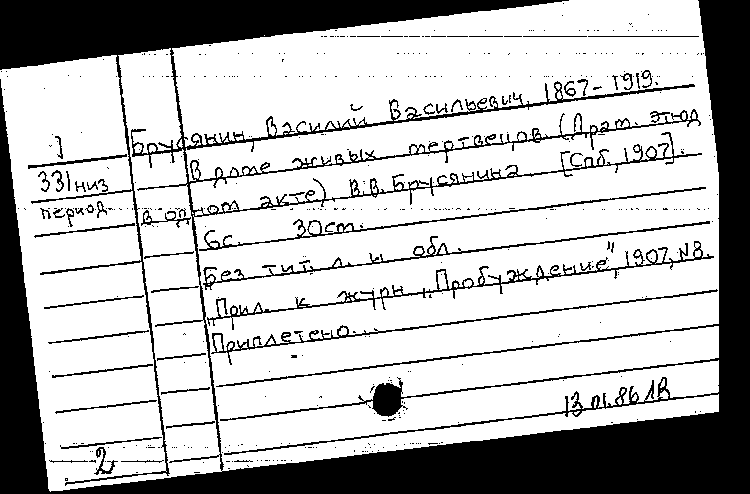 Брусянин, Василий Васильевич, 1867-1919.
В доме живых мертвецов (Драм. этюд
331 низ
период.
в одном акте). В.В. Брусянина [Спб., 1907].
6с. 30см.
Без тит. л. и обл.
"Прил. к журн. „Пробуждение", 1907, №8.
Приплетено...
13.01.86
2